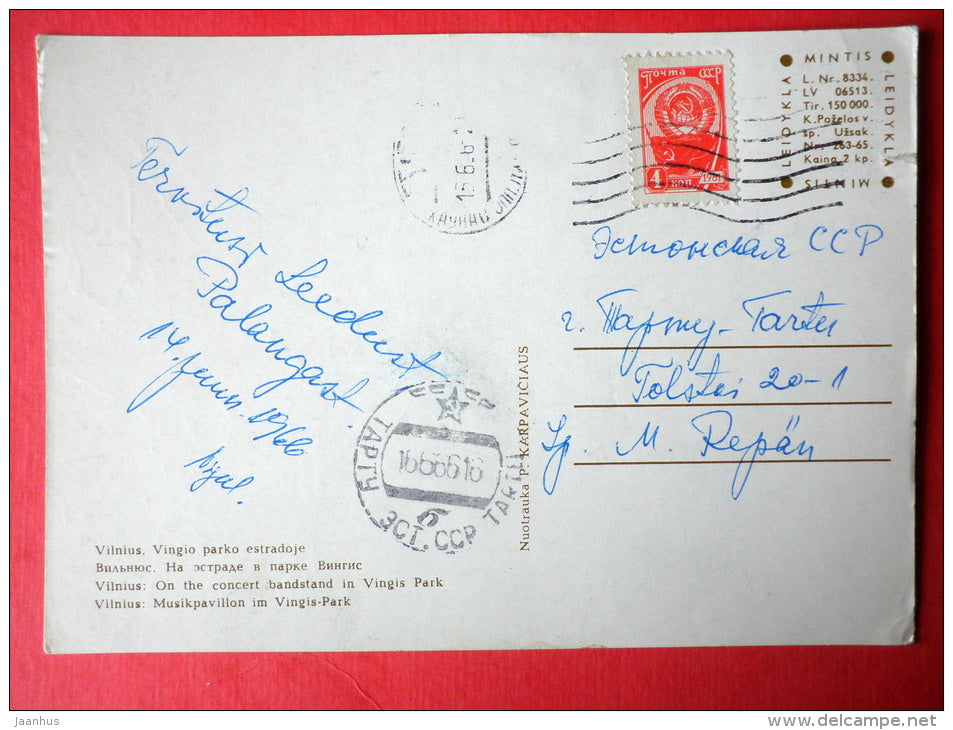 MINTIS
LEIDYKLA
L. Nr. 8334.
LV 06513.
Tir. 150 000.
K. Poželos v.
sp. Užsak.
Nr. 263-65.
Kaina 2 kp.
LEIDYKLA
MINTIS
Почта СССР
4 коп. 1961
15.6.6
КАУНАС
Tervitusi Leedust
Palangast.
14. juun. 1966
Эстонская ССР
г. Тарту - Tartu
Tolstoi 20-1
Sp. M. Repän
ТАРТУ TARTU
1666616
б
ЭСТ. ССР
Nuotrauka P. KARPAVIČIAUS
Vilnius. Vingio parko estradoje
Вильнюс. На эстраде в парке Вингис
Vilnius: On the concert bandstand in Vingis Park
Vilnius: Musikpavillon im Vingis-Park
Jaanhus
delcampe.net